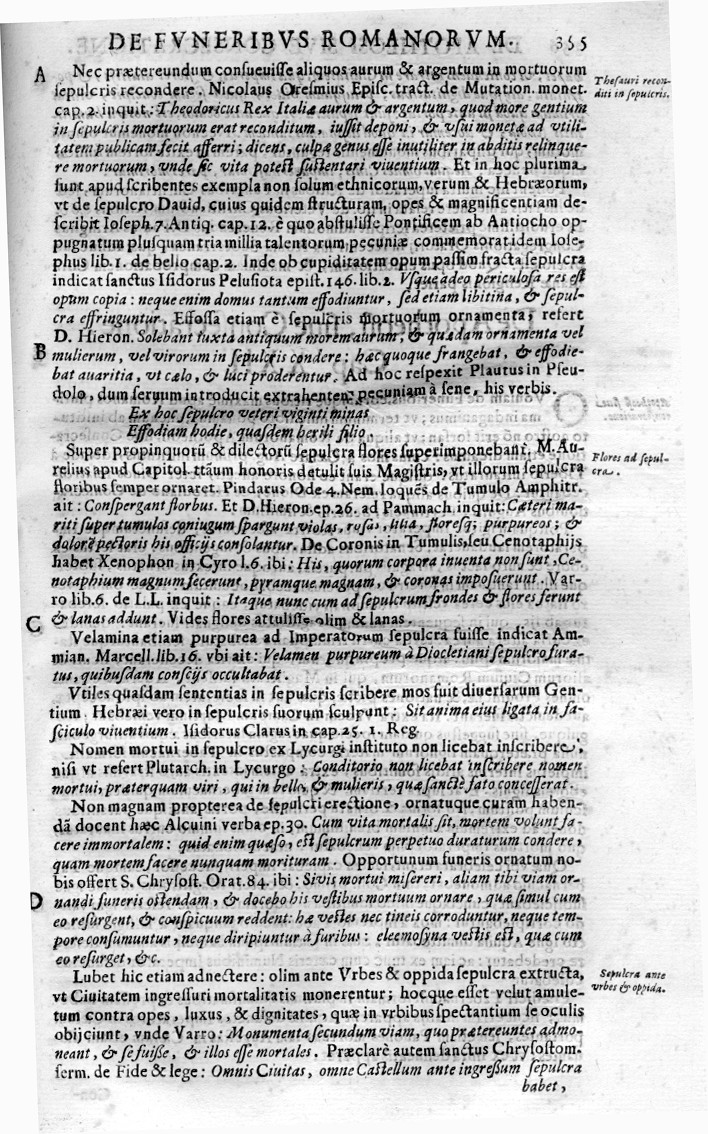 DE FVNERIBVS ROMANORVM. 355
A Nec prætereundum consueuisse aliquos aurum & argentum in mortuorum
Thesauri recon-
diti in sepulcris.
sepulcris recondere. Nicolaus Oresmius Episc. tract. de Mutation. monet.
cap. 2. inquit: Theodoricus Rex Italiæ aurum & argentum, quod more gentium
in sepulcris mortuorum erat reconditum, iussit deponi, & vsui monetæ ad vtili-
tatem publicam fecit afferri; dicens, culpæ genus esse inutiliter in abditis relinque-
re mortuorum, vnde sic vita potest sustentari viuentium. Et in hoc plurima
sunt apud scribentes exempla non solum ethnicorum, verum & Hebræorum,
vt de sepulcro Dauid, cuius quidem structuram, opes & magnificentiam de-
scribit Ioseph. 7. Antiq. cap. 12. è quo abstulisse Pontificem ab Antiocho op-
pugnatum plusquam tria millia talentorum pecuniæ commemorat idem Iose-
phus lib. 1. de bello cap. 2. Inde ob cupiditatem opum passim fracta sepulcra
indicat sanctus Isidorus Pelusiota epist. 146. lib. 2. Vsque adeo periculosa res est
opum copia: neque enim domus tantum effodiuntur, sed etiam libitina, & sepul-
cra effringuntur. Effossa etiam è sepulcris mortuorum ornamenta, refert
D. Hieron. Solebant iuxta antiquum morem aurum, & quædam ornamenta vel
B mulierum, vel virorum in sepulcris condere: hæc quoque frangebat, & effodie-
bat auaritia, vt cælo, & luci proderentur. Ad hoc respexit Plautus in Pseu-
dolo, dum seruum introducit extrahentem pecuniam à sene, his verbis.
Ex hoc sepulcro veteri viginti minas
Effodiam hodie, quasdem herili filio.
Super propinquorū & dilectorū sepulcra flores superimponebant. M. Au-
Flores ad sepul-
cra.
relius apud Capitol. ttãum honoris detulit suis Magistris, vt illorum sepulcra
floribus semper ornaret. Pindarus Ode 4. Nem. loquēs de Tumulo Amphitr.
ait: Conspergant floribus. Et D. Hieron. ep. 26. ad Pammach. inquit: Cæteri ma-
riti super tumulos coniugum spargunt violas, rosas, lilia, floresq; purpureos; &
dolorē pectoris his officijs consolantur. De Coronis in Tumulis, seu Cenotaphijs
habet Xenophon in Cyro l. 6. ibi: His, quorum corpora inuenta non sunt, Ce-
notaphium magnum fecerunt, pyramque magnam, & coronas imposuerunt. Var-
ro lib. 6. de L.L. inquit: Itaque nunc cum ad sepulcrum frondes & flores ferunt
C & lanas addunt. Vides flores attulisse olim & lanas.
Velamina etiam purpurea ad Imperatorum sepulcra fuisse indicat Am-
mian. Marcell. lib. 16. vbi ait: Velamen purpureum à Diocletiani sepulcro fura-
tus, quibusdam conscijs occultabat.
Vtiles quasdam sententias in sepulcris scribere mos fuit diuersarum Gen-
tium. Hebræi vero in sepulcris suorum sculpunt: Sit anima eius ligata in fa-
sciculo viuentium. Isidorus Clarus in cap. 25. 1. Reg.
Nomen mortui in sepulcro ex Lycurgi instituto non licebat inscribere,
nisi vt refert Plutarch. in Lycurgo: Conditorio non licebat inscribere nomen
mortui, præterquam viri, qui in bello, & mulieris, quæ sanctè fato concesserat.
Non magnam propterea de sepulcri erectione, ornatuque curam haben-
dã docent hæc Alcuini verba ep. 30. Cum vita mortalis sit, mortem volunt fa-
cere immortalem: quid enim quæso, est sepulcrum perpetuo duraturum condere,
quam mortem facere nunquam morituram. Opportunum funeris ornatum no-
bis offert S. Chrysost. Orat. 84. ibi: Sivis mortui misereri, aliam tibi viam or-
D nandi funeris ostendam, & docebo his vestibus mortuum ornare, quæ simul cum
eo resurgent, & conspicuum reddent: hæ vestes nec tineis corroduntur, neque tem-
pore consumuntur, neque diripiuntur à furibus: eleemosyna vestis est, quæ cum
eo resurget, &c.
Lubet hic etiam adnectere: olim ante Vrbes & oppida sepulcra extructa,
Sepulcra ante
vrbes & oppida.
vt Ciuitatem ingressuri mortalitatis monerentur; hocque esset velut amule-
tum contra opes, luxus, & dignitates, quæ in vrbibus spectantium se oculis
obijciunt, vnde Varro: Monumenta secundum viam, quo prætereuntes admo-
neant, & se fuisse, & illos esse mortales. Præclarè autem sanctus Chrysostom.
serm. de Fide & lege: Omnis Ciuitas, omne Castellum ante ingressum sepulcra
habet,